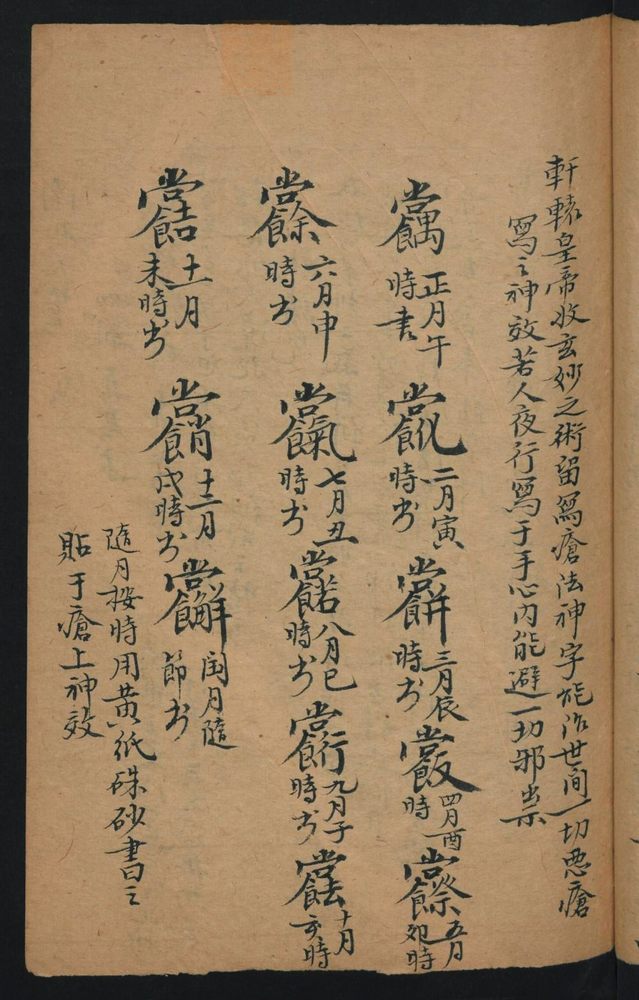 軒轅皇帝收玄妙之術留寫瘡法神字能治世間一切惡瘡
寫之神效若人夜行寫于手心內能避一切邪祟
正月午
時書
二月寅
時书
三月辰
時书
四月酉
時
五月
卯時
六月申
時书
七月丑
時书
八月巳
時书
九月子
時书
十月
亥時
十一月
未時书
十二月
戌時书
閏月隨
節书
隨月按時用黃紙硃砂書之
貼于瘡上神效